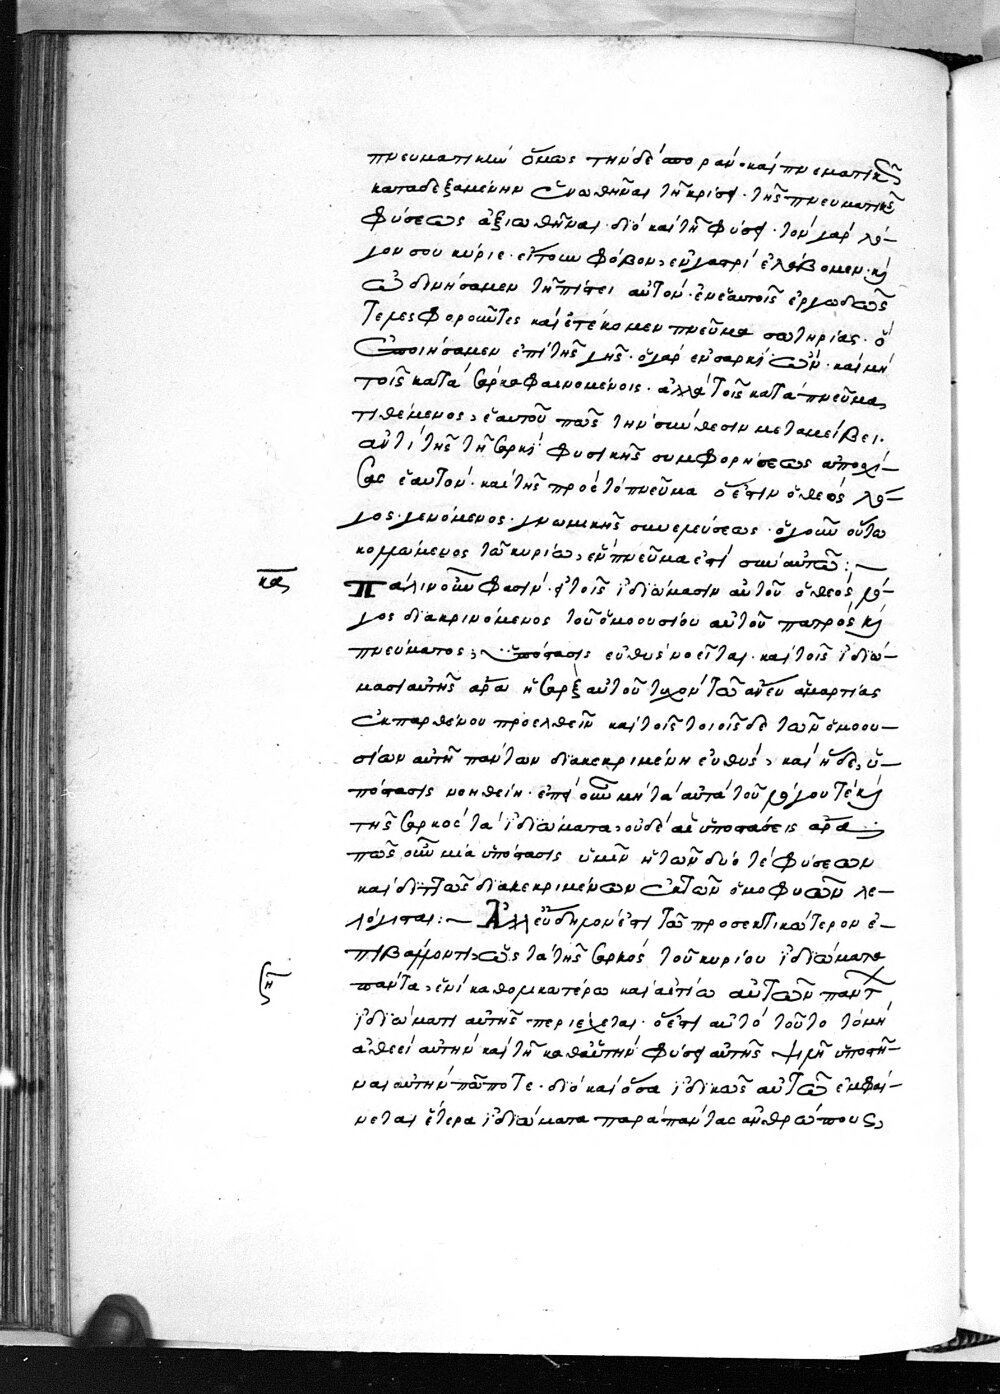 πνευματικῶν ὅμως τὴν δὲ ἀποράν· καὶ πνευματικῶς
καταδεξαμένην ἑνωθῆναι τῇ κρίσει· τῆς πνευματικῆς
φύσεως ἀξιωθῆναι· διὸ καὶ τῇ φύσει· τὸν γὰρ λό-
γον σου κύριε· εἴτουν φόβον, ἐν γαστρὶ ἐλάβομεν· καὶ
ὠδινήσαμεν τῇ πίστει αὐτόν· ἐν ἑαυτοῖς ἐργωδῶς
τε μεσφοροῦντες καὶ ἐτέκομεν πνεῦμα σωτηρίας· ὃ
ἐποιήσαμεν ἐπὶ τῆς γῆς· ὁ γὰρ ἐν σαρκὶ ὤν· καὶ μὴ
τοῖς κατὰ σάρκα φαινομένοις· ἀλλὰ τοῖς κατὰ πνεῦμα,
τιθέμενος, ἑαυτοῦ πως τὴν σύνθεσιν μεταμείβει·
ἀντὶ τῆς τῇ σαρκὶ φυσικῆς συμφορήσεως ἀποσχί-
σας ἑαυτόν· καὶ τῆς πρὸς τὸ πνεῦμα ὅ ἐστιν ὁ θεὸς λό-
γος· γενόμενος· γνωμικῆς συνελεύσεως· ὁ γοῦν οὕτω
κολλώμενος τῷ κυρίῳ, ἓν πνεῦμα ἐστὶ σὺν αὐτῷ :~
κα
Πάλιν οὖν φασίν· εἰ τοῖς ἰδιώμασιν αὐτοῦ ὁ θεὸς λό-
γος διακρινόμενος τοῦ ὁμοουσίου αὐτοῦ πατρὸς καὶ
πνεύματος, ὑπόστασις εὐθὺς νοεῖται· καὶ τοῖς ἰδιώ-
μασι αὐτῆς ἄρα ἡ σὰρξ αὐτοῦ τυχὸν τῷ ἄνευ ἁμαρτίας
ἐκ παρθένου προελθεῖν καὶ τοῖς τοιοῖσδε τῶν ὁμοου-
σίων αὐτῇ πάντων διακεκριμένη εὐθύς, καὶ ἥδε, ὑ-
πόστασις νοηθείη· ἐπεὶ οὖν μὴ τὰ αὐτὰ τοῦ λόγου τὲ καὶ
τῆς σαρκὸς τὰ ἰδιώματα, οὐδὲ αἱ ὑποστάσεις ἄρα·
πῶς οὖν μία ὑπόστασις ὑμῖν ἡ τῶν δύο τὲ φύσεων
καὶ διττῶς διακεκριμένων ἐκ τῶν ὁμοφυῶν λε-
λόγισται :~ Ἀλλ εὔδηλον ἐστὶ τῷ προσεκτικώτερον ἐ-
πιβάλλοντι, ὡς τὰ τῆς σαρκὸς τοῦ κυρίου ἰδιώματα
πάντα, ἑνὶ καθολικωτέρω καὶ αἰτίω αὐτῶν παντ
ἰδιώματι αὐτῆς· περιέχεται· ὅ ἐστι αὐτὸ τοῦτο τὸ μὴ
ἀθεεὶ αὐτὴν καὶ τῇ καθ αὑτὴν φύσει αὐτῆς ψιλῇ ὑποστῆ-
ναι αὐτὴν πώποτε· διὸ καὶ ὅσα ἰδικῶς αὐτῷ ἐμφαί-
νεται ἕτερα ἰδιώματα παρὰ πάντας ἀνθρώπους,